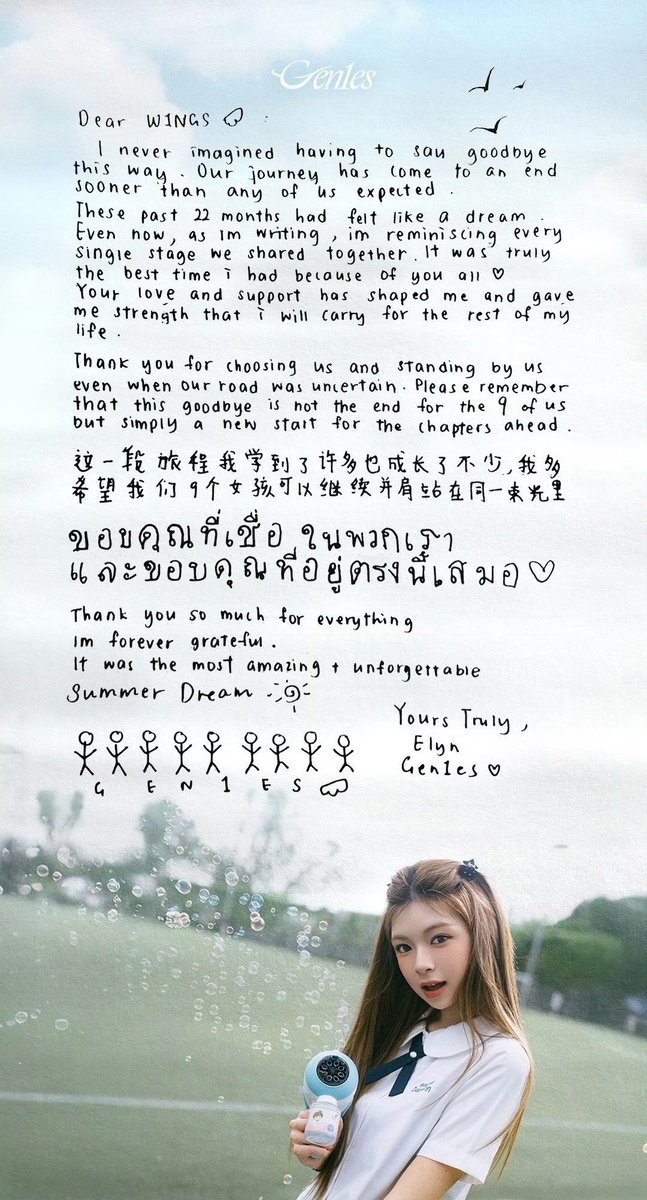 Gen1es
Dear W1NGS :
I never imagined having to say goodbye
this way. Our journey has come to an end
sooner than any of us expected.
These past 22 months had felt like a dream.
Even now, as im writing, im reminiscing every
single stage we shared together. It was truly
the best time i had because of you all ♡
Your love and support has shaped me and gave
me strength that i will carry for the rest of my
life.
Thank you for choosing us and standing by us
even when our road was uncertain. Please remember
that this goodbye is not the end for the 9 of us
but simply a new start for the chapters ahead.
这一段旅程我学到了许多也成长了不少,我多
希望我们9个女孩可以继续并肩站在同一束光里
ขอบคุณที่เชื่อ ในพวกเรา
และขอบคุณที่อยู่ตรงนี้เสมอ♡
Thank you so much for everything
Im forever grateful.
It was the most amazing + unforgettable
Summer Dream
Yours Truly,
Elyn
Gen1es ♡
G E N 1 E S